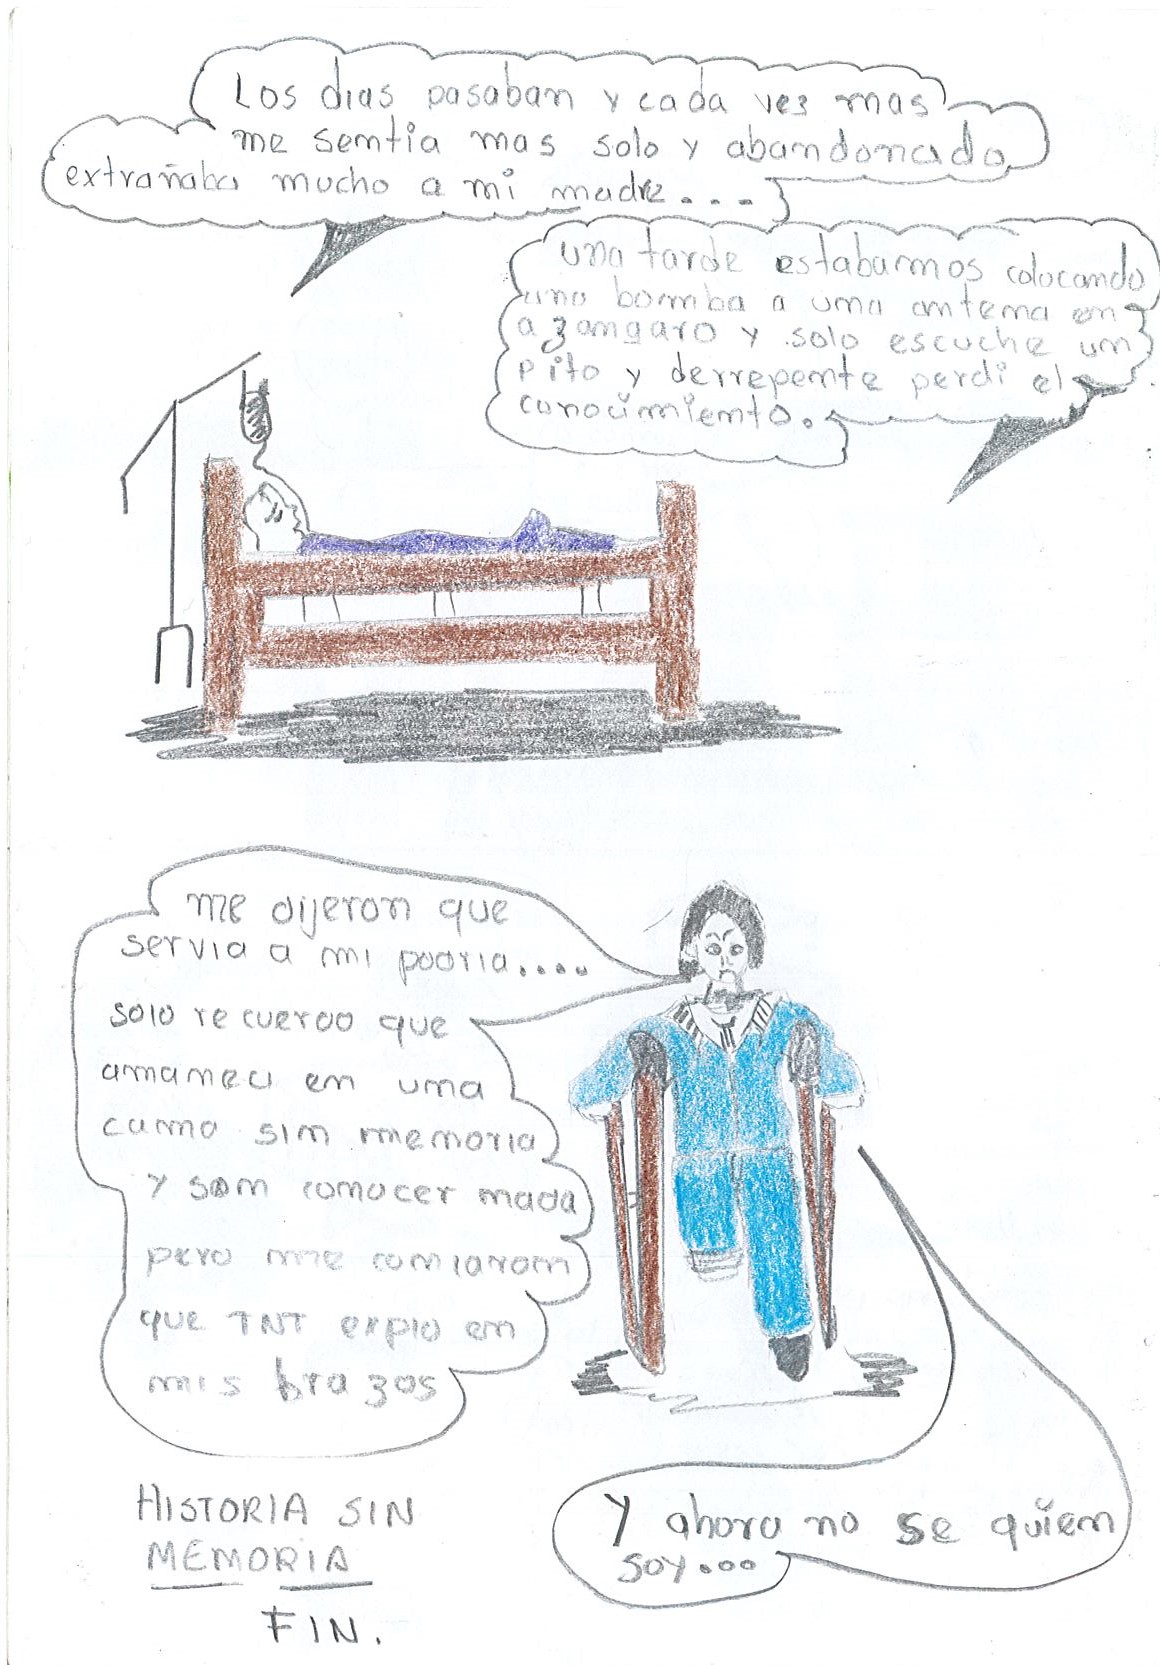 Los dias pasaban y cada ves mas
me semtia mas solo y abamdomado
extrañaba mucho a mi madre....
una tarde estabamos colocamdo
uma bomba a uma amtema em
azamgaro y solo escuche um
pito y derrepemte perdi el
comocimiemto.
me dijerom que
servia a mi patria....
solo recuerdo que
amameci em uma
cama sim memoria
y som comocer mada
pero me comtarom
que TNT explo em
mis brazos
Y ahora no se quiem
soy...
HISTORIA SIN
MEMORIA
FIN.